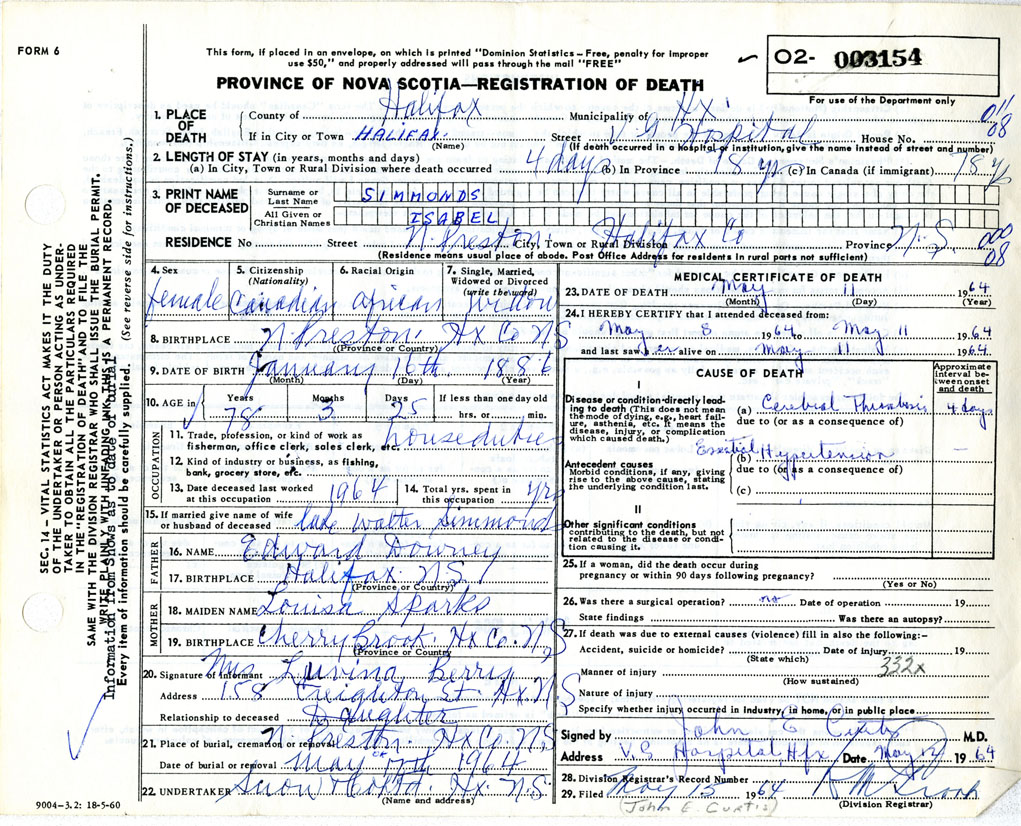 FORM 6
This form, if placed in an envelope, on which is printed "Dominion Statistics—Free, penalty for improper
use $50," and properly addressed will pass through the mail "FREE"
O2- 003154
For use of the Department only
PROVINCE OF NOVA SCOTIA—REGISTRATION OF DEATH
1. PLACE OF DEATH
County of Halifax Municipality of Hx
If in City or Town HALIFAX. Street V G Hospital House No.
(Name) (If death occurred in a hospital or institution, give the name instead of street and number)
08
2. LENGTH OF STAY (in years, months and days)
(a) In City, Town or Rural Division where death occurred 4 days (b) In Province 78 yrs (c) In Canada (if immigrant) 78 y
3. PRINT NAME OF DECEASED
Surname or Last Name SIMMONDS
All Given or Christian Names ISABEL
RESIDENCE No. Street N. Preston City, Town or Rural Division Halifax Co Province N.S.
(Residence means usual place of abode. Post Office Address for residents in rural parts not sufficient)
08
4. Sex female
5. Citizenship (Nationality) Canadian
6. Racial Origin African
7. Single, Married, Widowed or Divorced (write the word) widow
8. BIRTHPLACE N Preston Hx Co N S
(Province or Country)
9. DATE OF BIRTH January 16th. 1886
(Month) (Day) (Year)
10. AGE in Years 78 Months 3 Days 25 If less than one day old hrs. or min.
OCCUPATION
11. Trade, profession, or kind of work as fisherman, office clerk, sales clerk, etc. houseduties
12. Kind of industry or business, as fishing, bank, grocery store, etc.
13. Date deceased last worked at this occupation 1964
14. Total yrs. spent in this occupation yrs
15. If married give name of wife or husband of deceased late Walter Simmonds
FATHER
16. NAME Edward Downey
17. BIRTHPLACE Halifax N S
(Province or Country)
MOTHER
18. MAIDEN NAME Louisa Sparks
19. BIRTHPLACE Cherrybrook. Hx Co. N.S
(Province or Country)
20. Signature of informant Mrs Luvina Berry
Address 158 Creighton St Hx. N.S
Relationship to deceased Daughter
21. Place of burial, cremation or removal N. Preston. Hx Co N S
Date of burial or removal May 1964
22. UNDERTAKER Snow Hx. N.S.
(Name and address)
MEDICAL CERTIFICATE OF DEATH
23. DATE OF DEATH May 11 1964
(Month) (Day) (Year)
24. I HEREBY CERTIFY that I attended deceased from:
May 8 1964 to May 11 1964
and last saw her alive on May 11 1964.
CAUSE OF DEATH
Approximate interval between onset and death
I
Disease or condition directly leading to death (This does not mean the mode of dying, e.g., heart failure, asthenia, etc. It means the disease, injury, or complication which caused death.)
(a) Cerebral Thrombosis 4 days
due to (or as a consequence of)
Antecedent causes
Morbid conditions, if any, giving rise to the above cause, stating the underlying condition last.
(b) Essential Hypertension —
due to (or as a consequence of)
(c)
II
Other significant conditions contributing to the death, but not related to the disease or condition causing it.
25. If a woman, did the death occur during pregnancy or within 90 days following pregnancy?
(Yes or No)
26. Was there a surgical operation? no Date of operation 19
State findings Was there an autopsy?
27. If death was due to external causes (violence) fill in also the following:—
Accident, suicide or homicide? Date of injury 19
(State which)
Manner of injury 332x
(How sustained)
Nature of injury
Specify whether injury occurred in industry, in home, or in public place
Signed by John E Curtis M.D.
Address V.G Hospital, Hfx Date May 12 1964
28. Division Registrar's Record Number
29. Filed May 15 1964
(Division Registrar)
(John E. CURTIS)
SEC. 14 – VITAL STATISTICS ACT MAKES IT THE DUTY
OF THE UNDERTAKER OR PERSON ACTING AS UNDER-
TAKER TO OBTAIN ALL THE PARTICULARS REQUIRED
IN THE "REGISTRATION OF DEATH" AND TO FILE THE
SAME WITH THE DIVISION REGISTRAR WHO SHALL ISSUE THE BURIAL PERMIT.
WRITE PLAINLY WITH UNFADING INK—THIS IS A PERMANENT RECORD.
Every item of information should be carefully supplied. (See reverse side for instructions.)
9004–3.2: 18-5-60